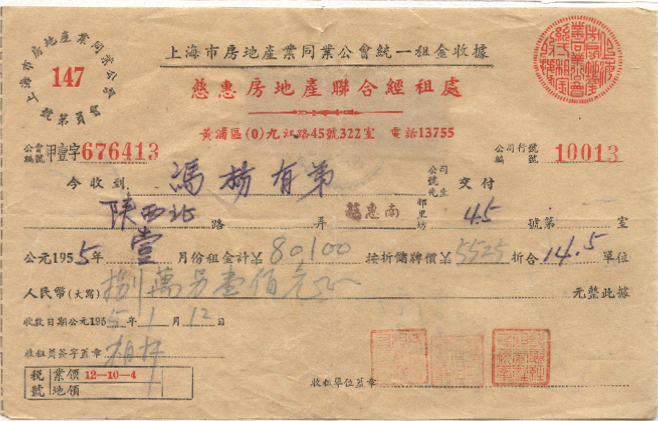 上海市房地產業同業公會
147
號第員會
上海市房地產業同業公會統一租金收據
慈惠房地產聯合經租處
黃浦區(0)九江路45號322室 電話13755
公會編號 甲壹字676413
公司行號編號 10013
今收到 馮楊有弟 公司寶號先生 交付
陝西北 路 弄 慈惠南 邨里坊 45 號第 室
公元1955年 壹 月份租金計￥80100 按折儲牌價￥5525 折合 14.5 單位
人民幣(大寫) 捌萬另壹佰元正 元整此據
收款日期公元1955年1月12日
收租員簽字蓋章
收租單位蓋章
稅號 業領 12-10-4
地領